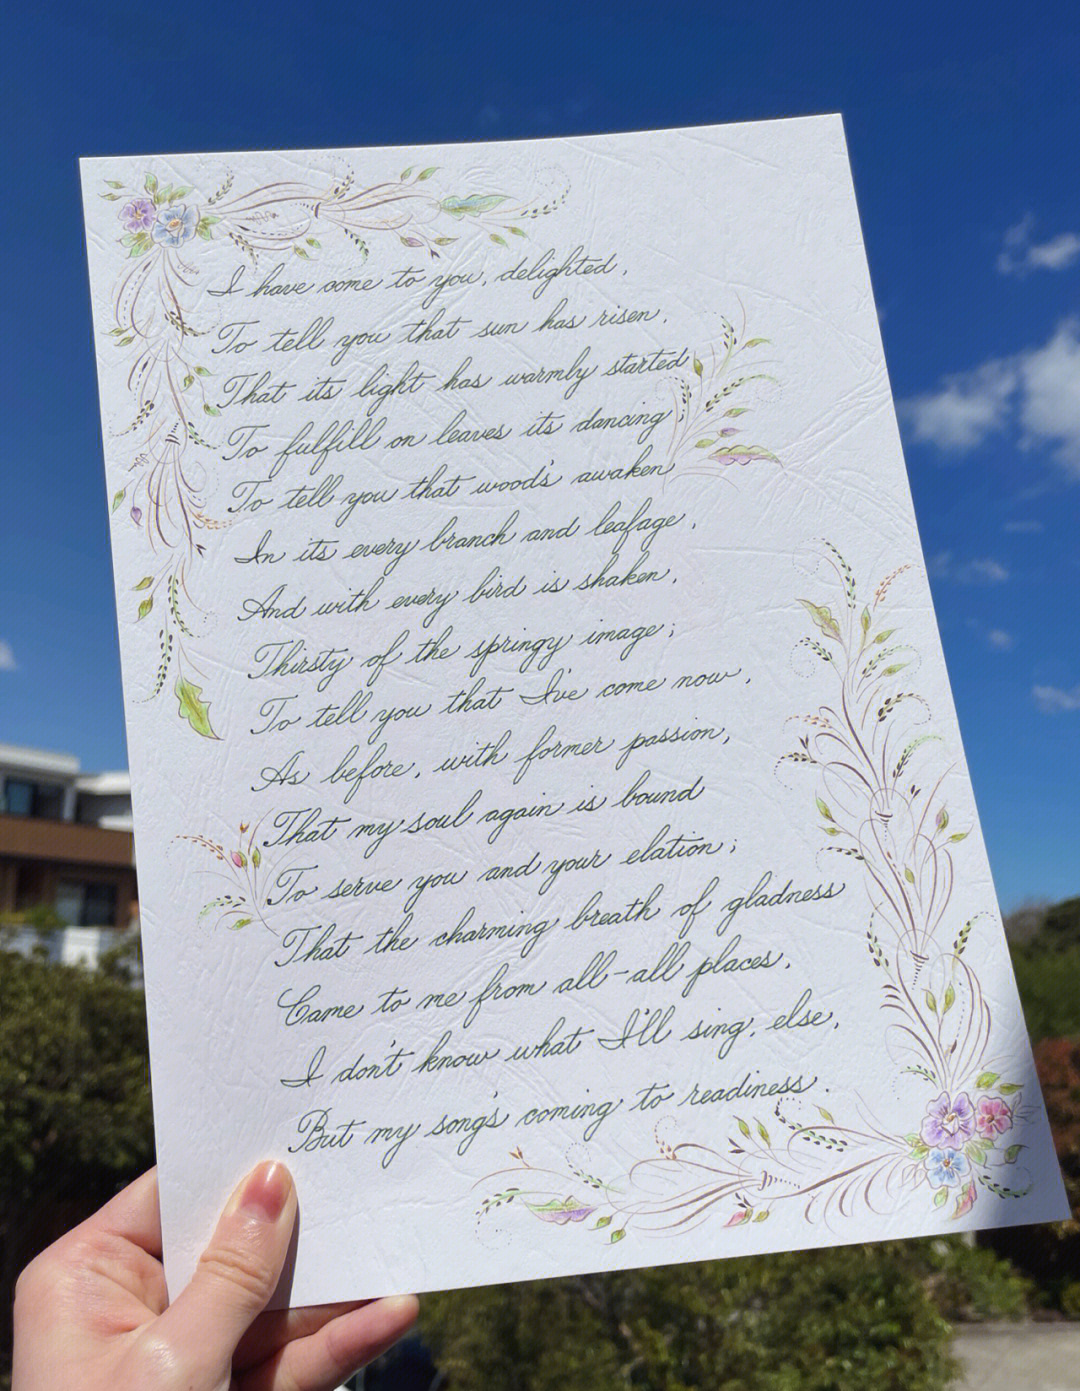 I have come to you, delighted,
To tell you that sun has risen,
That its light has warmly started
To fulfill on leaves its dancing;
To tell you that wood's awaken
In its every branch and leafage,
And with every bird is shaken,
Thirsty of the springy image;
To tell you that I've come now,
As before, with former passion,
That my soul again is bound
To serve you and your elation;
That the charming breath of gladness
Came to me from all-all places,
I don't know what I'll sing, else,
But my song's coming to readiness.